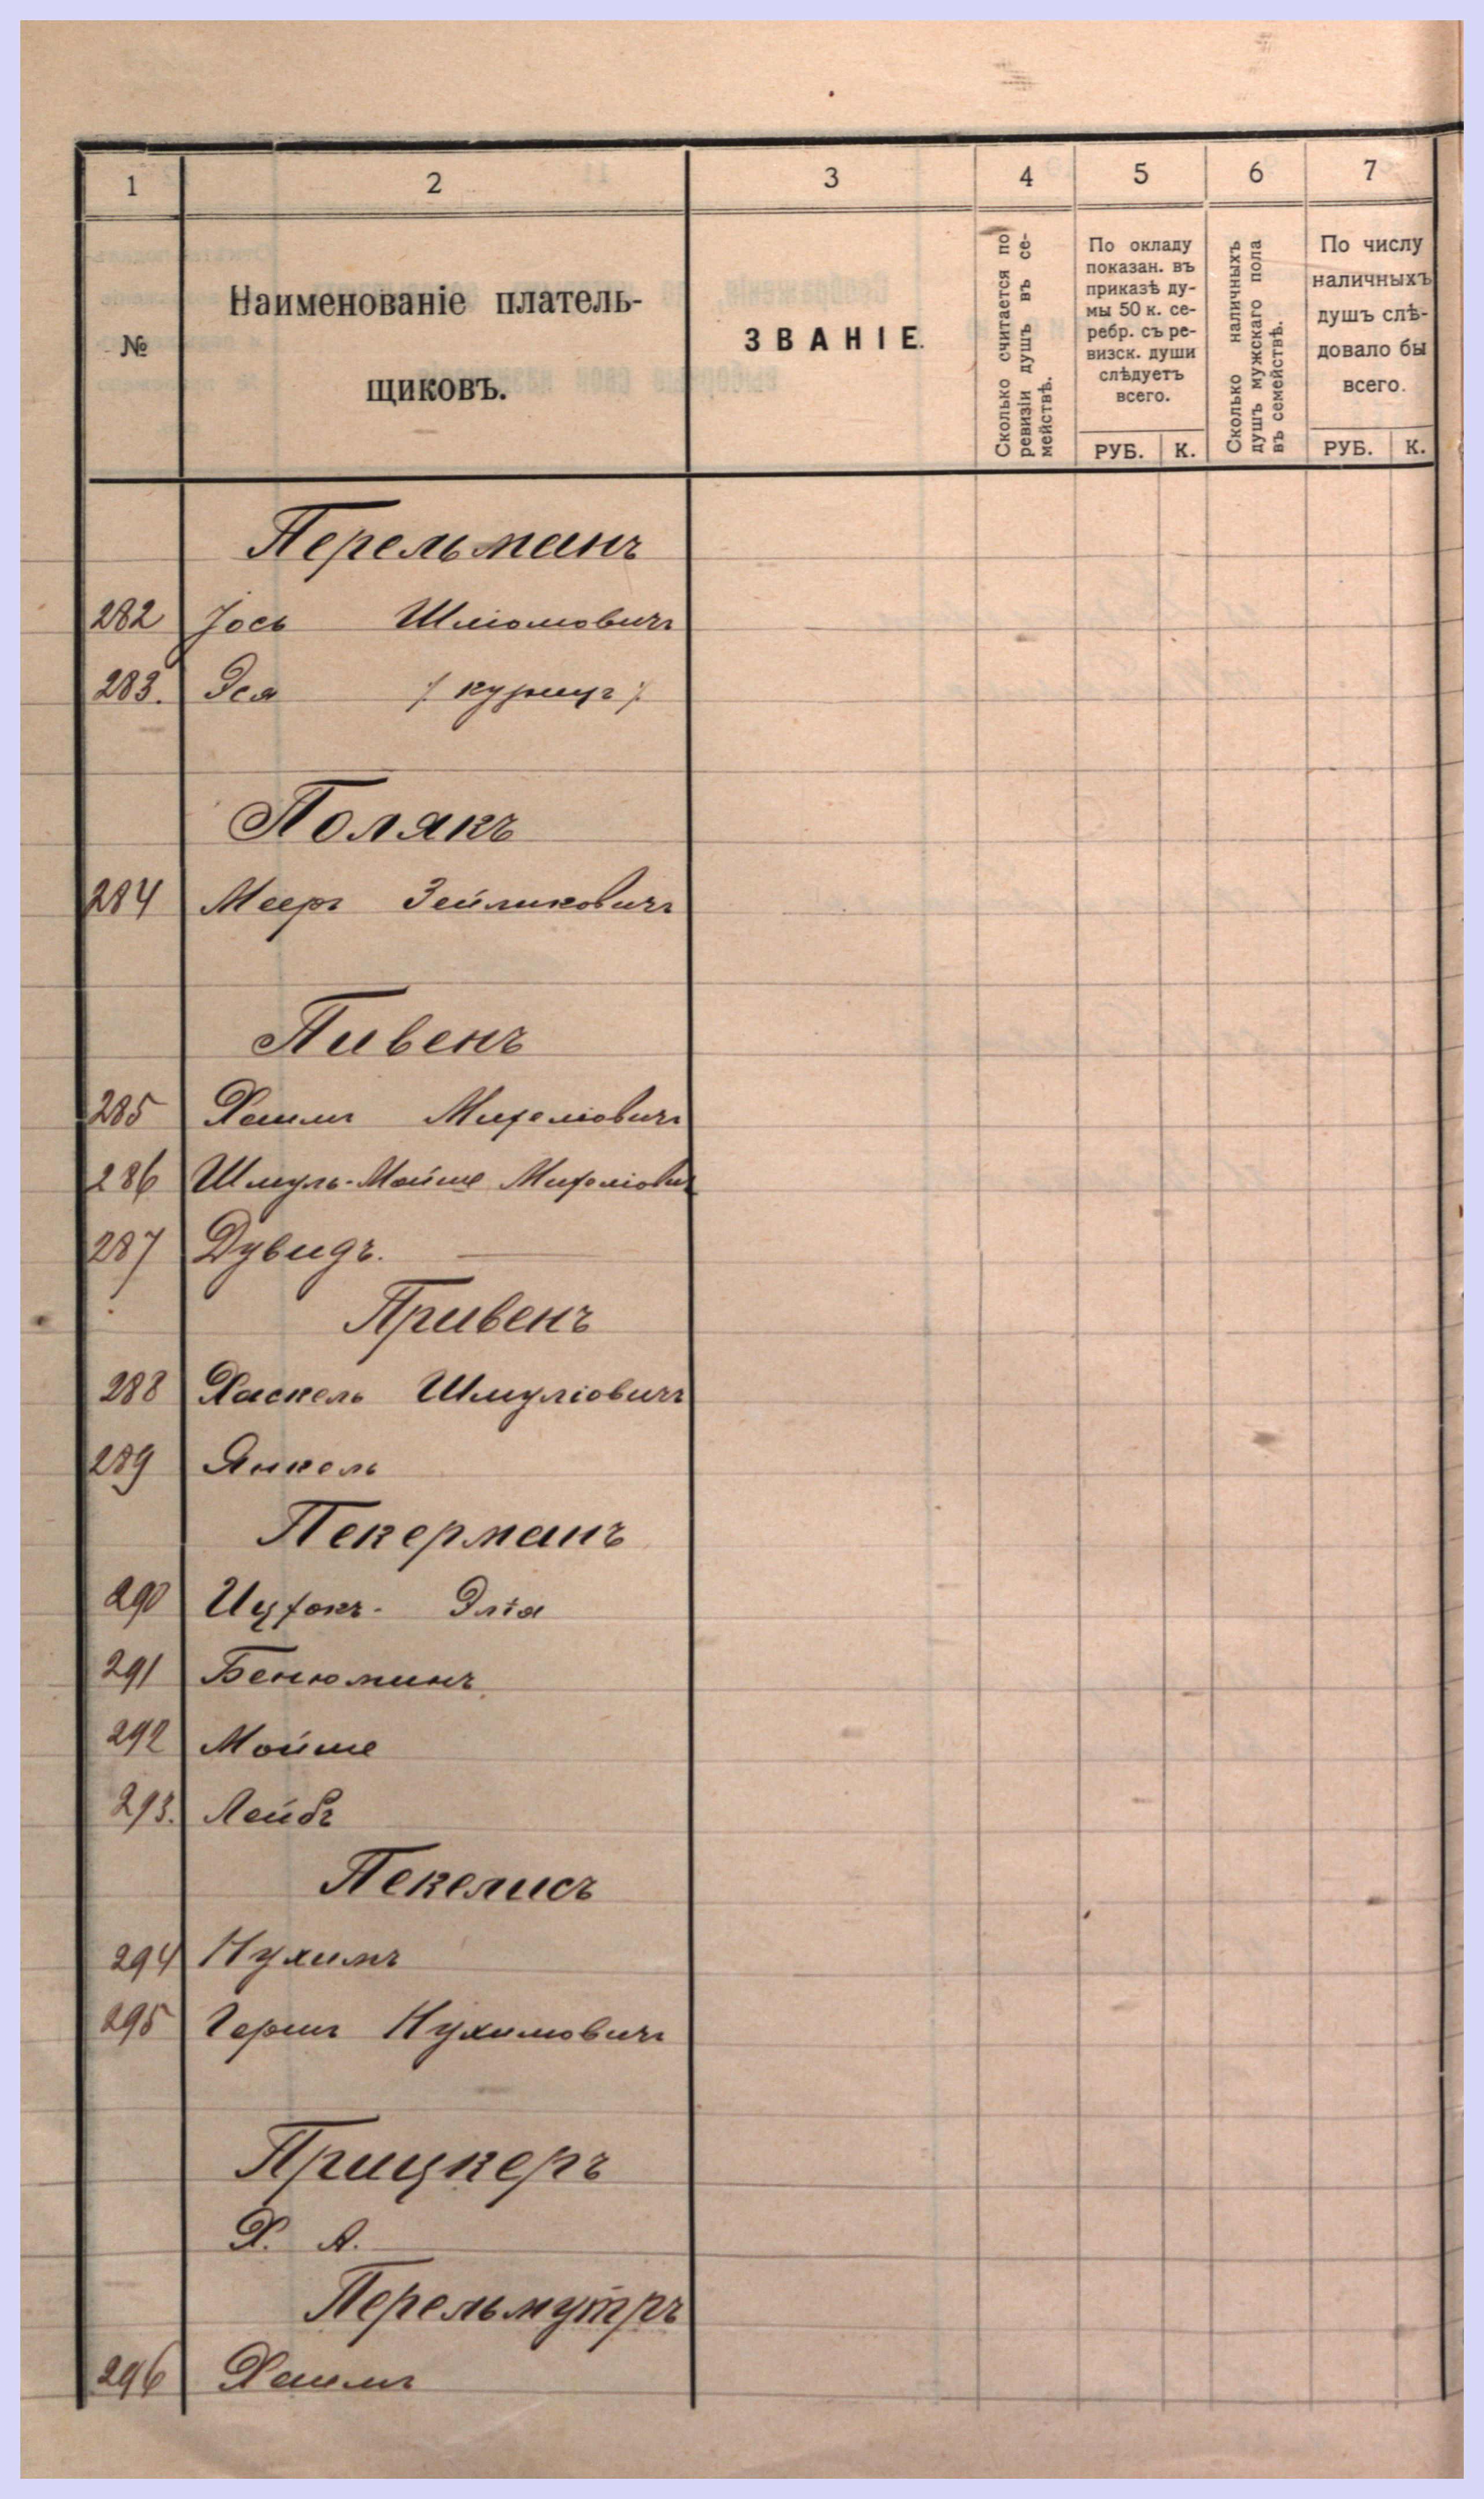 1 2 3 4 5 6 7
№
Наименованіе платель-
щиковъ.
ЗВАНІЕ.
Сколько считается по
ревизіи душъ въ се-
мействѣ.
По окладу
показан. въ
приказѣ ду-
мы 50 к. се-
ребр. съ ре-
визск. души
слѣдуетъ
всего.
РУБ. К.
Сколько наличныхъ
душъ мужскаго пола
въ семействѣ.
По числу
наличныхъ
душъ слѣ-
довало бы
всего.
РУБ. К.
Перельманъ
282 Іось Шліомовичъ
283. Эся
Полякъ
284 Мееръ Зейликовичъ
Пивенъ
285 Хаимъ Михеліовичъ
286 Шмуль-Мойше Михеліович
287 Дувидъ. —
Привенъ
288 Хаскель Шмуліовичъ
289 Янкель
Пекерманъ
290 Ицхокъ- Элія
291 Бенюминъ
292 Мойше
293. Лейбъ
Пекелисъ
294 Нухимъ
295 Гершъ Нухимовичъ
Прицкеръ
Х. А.
Перельмутръ
296 Хаимъ